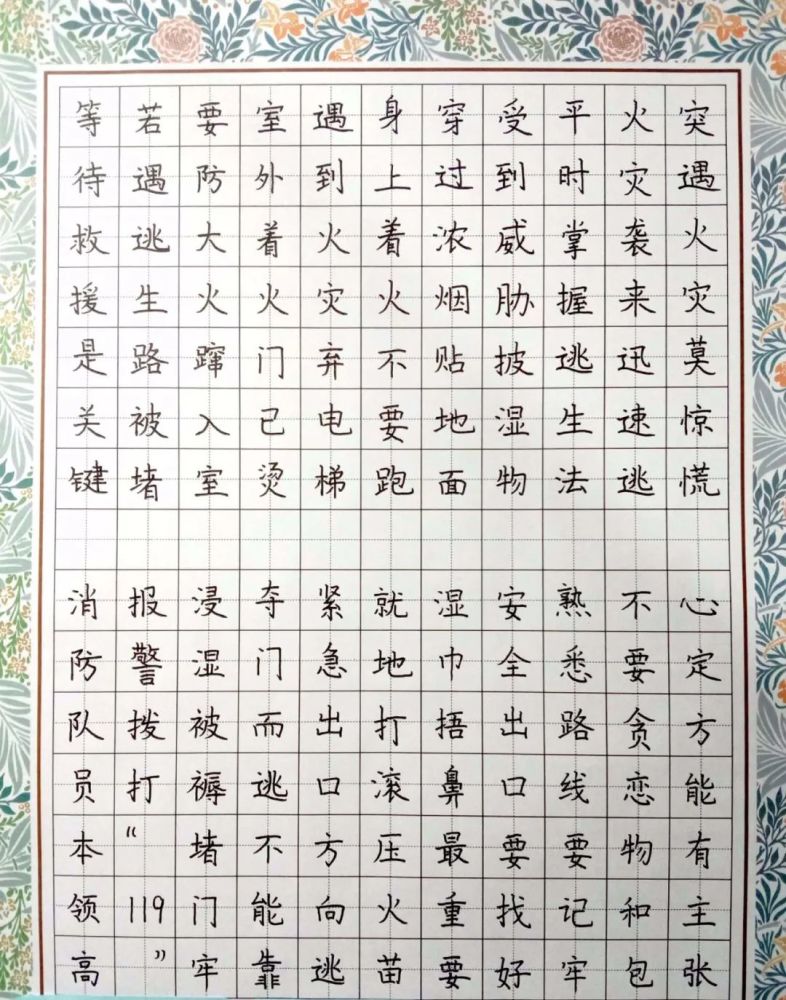 突遇火灾莫惊慌 心定方能有主张
火灾袭来迅速逃 不要贪恋物和包
平时掌握逃生法 熟悉路线要记牢
受到威胁披湿物 安全出口要找好
穿过浓烟贴地面 湿巾捂鼻最重要
身上着火不要跑 就地打滚压火苗
遇到火灾弃电梯 紧急出口方向逃
室外着火门已烫 夺门而逃不能靠
要防大火蹿入室 浸湿被褥堵门牢
若遇逃生路被堵 报警拨打“119”
等待救援是关键 消防队员本领高